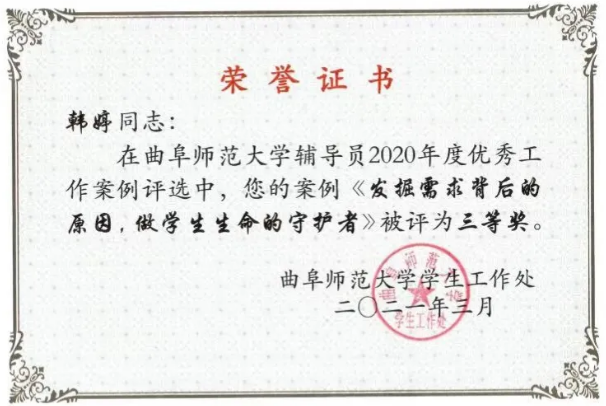 荣誉证书
韩婷同志：
在曲阜师范大学辅导员2020年度优秀工
作案例评选中，您的案例《发掘需求背后的
原因，做学生生命的守护者》被评为三等奖。
曲阜师范大学学生工作处
二〇二一年三月
曲阜师范大学
学生工作处